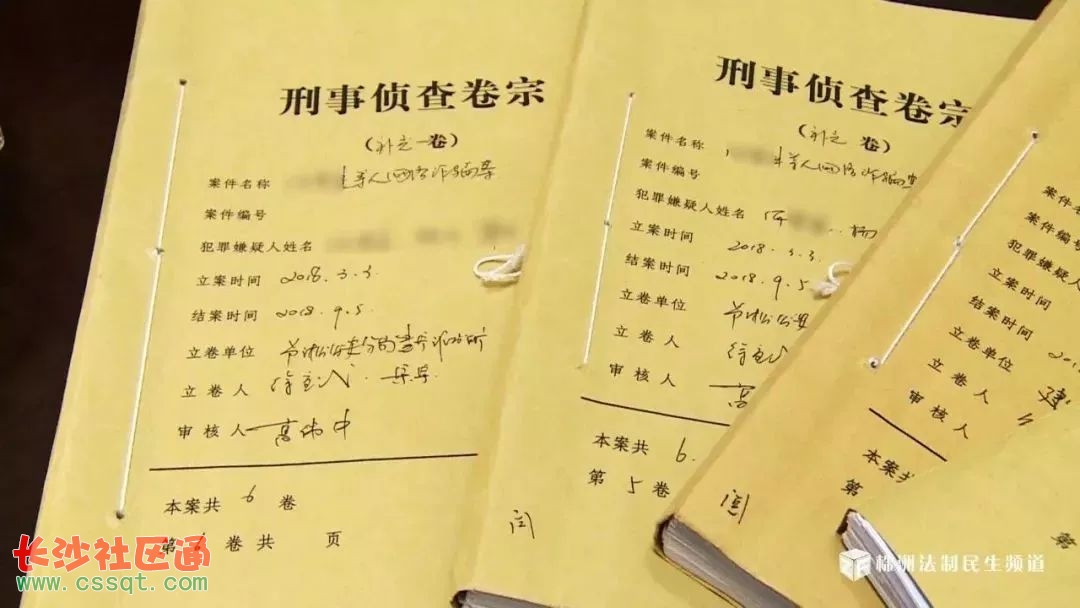 刑事侦查卷宗
(补充一卷)
案件名称 等人网络诈骗案
案件编号
犯罪嫌疑人姓名
立案时间 2018.3.3.
结案时间 2018.9.5.
立卷单位
立卷人
审核人 高伟中
本案共 6 卷
第 卷共 页
刑事侦查卷宗
(补充 卷)
案件名称 等人网络诈骗案
案件编号
犯罪嫌疑人姓名 杨
立案时间 2018.3.3.
结案时间 2018.9.5
立卷单位
立卷人
审核人 高
本案共 6.
第 5 卷
闫
案件名
案件编号
犯罪嫌疑人
立案时间
结案时间
立卷单位
立卷人
审核人
本案共
第
闫
第
长沙社区通
www.cssqt.com
株洲法制民生频道